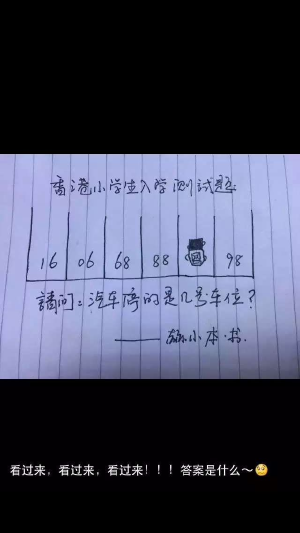 香港小学生入学测试题
16 06 68 88 98
請问:汽车停的是几号车位?
看过来,看过来,看过来!!!答案是什么~🧐